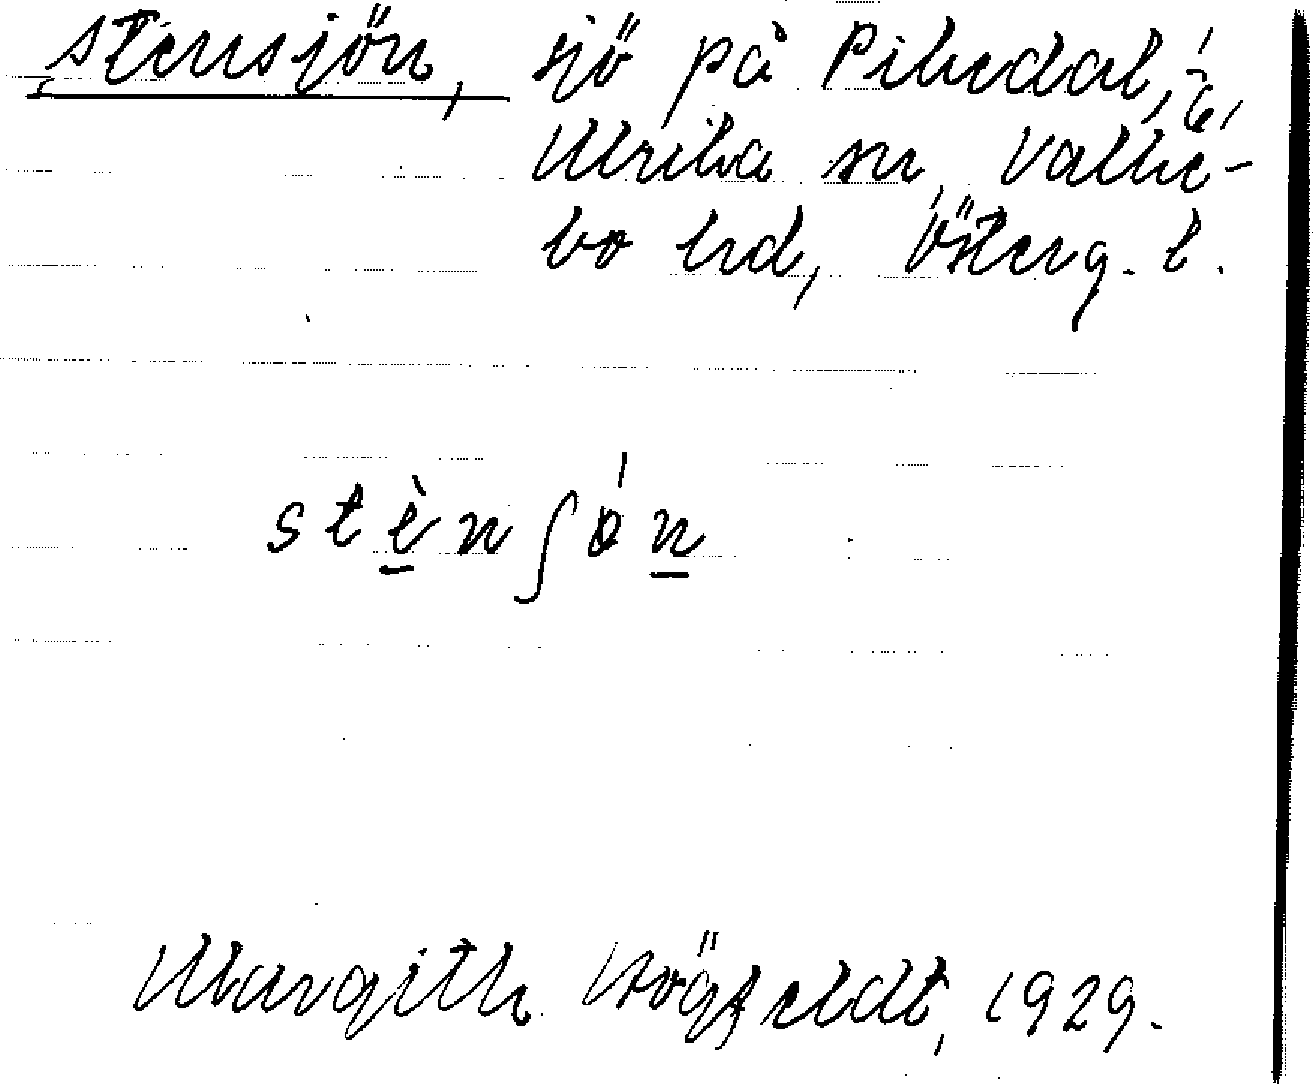 Stensjön, sjö på Pikedal, 1/6,
Ulrika sn, Valke-
bo hrd, Österg. l.
stènʃön
Margith Högfeldt, 1929.